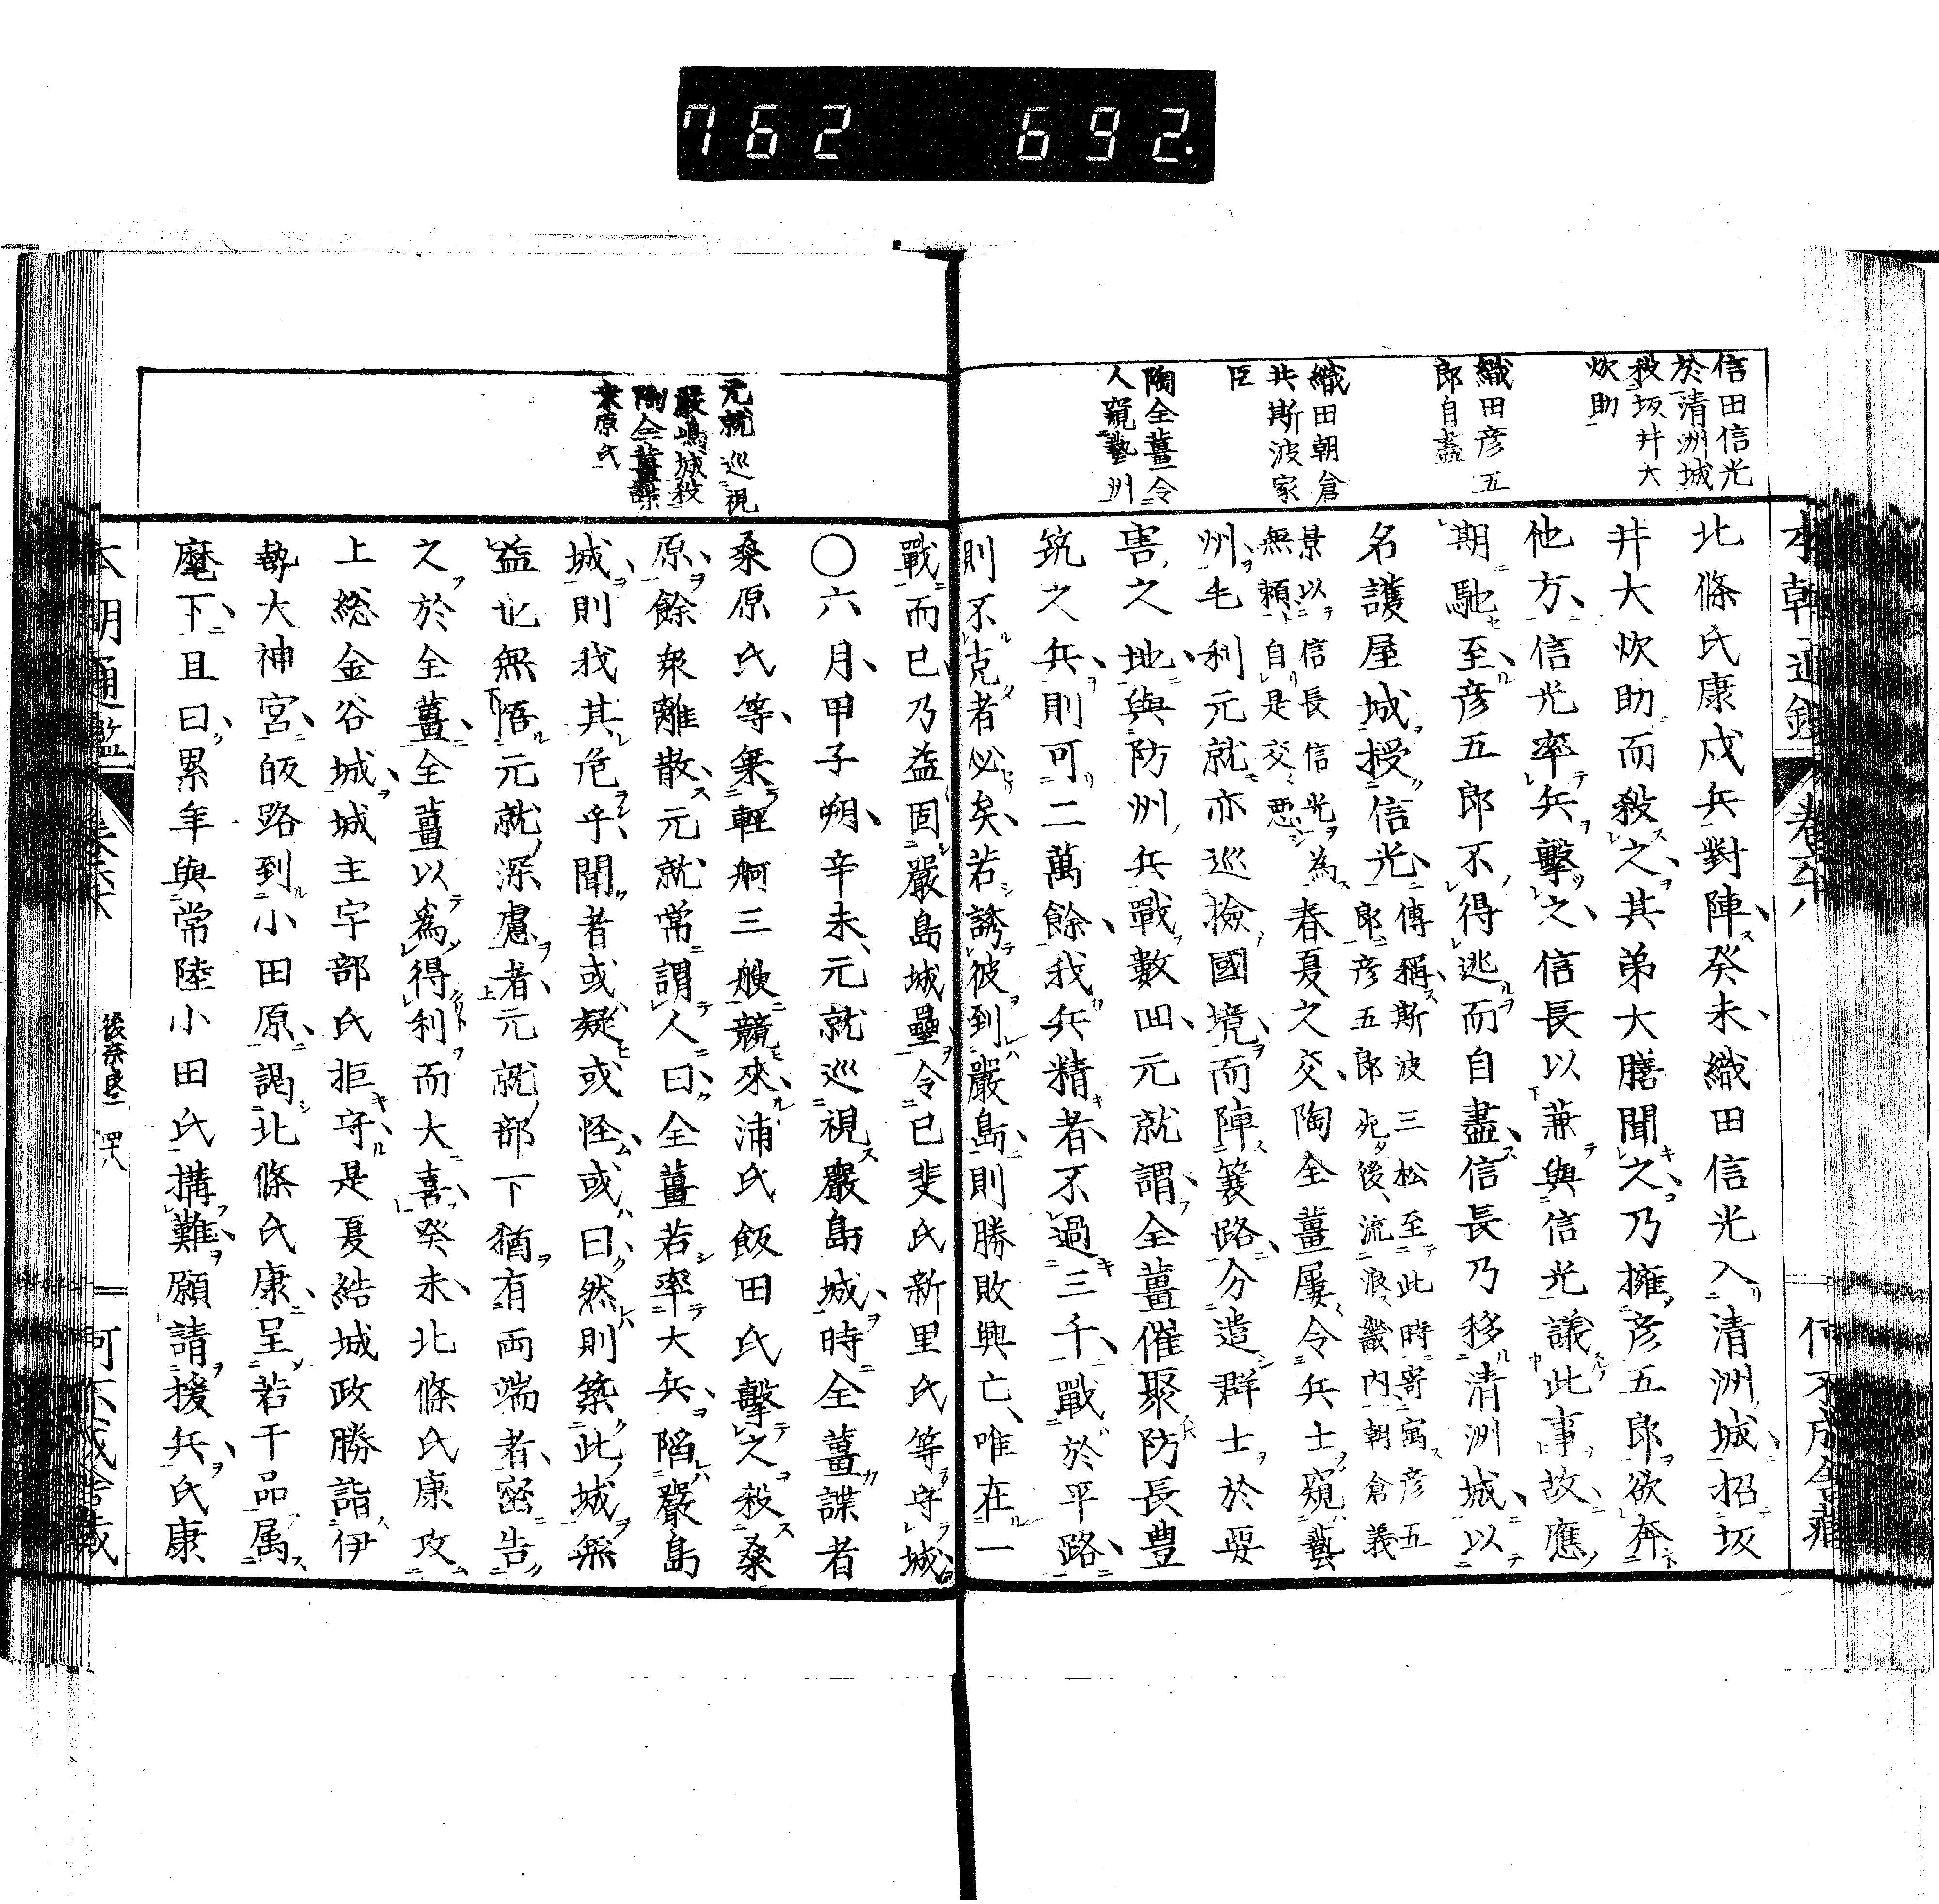 762 692.
信田信光
於清洲城
殺坂井大
炊助
織田彦五
郎自盡
織田朝倉
共斯波家
臣
陶全薑令
人窺藝州
北條氏康戍兵對陣癸未織田信光入清洲城招坂
井大炊助而殺之其弟大膳聞之乃擁彦五郎欲奔
他方信光率兵擊之信長以兼與信光議此事故應
期馳至彦五郎不得逃而自盡信長乃移清洲城以
名護屋城授信光傳稱斯波三松至此時寄寓彦五
郎彦五郎死後流浪畿内朝倉義
景以信長信光為
無頼自是交惡春夏之交陶全薑屢令兵士窺藝
州毛利元就亦巡撿國境而陣簑路分遣群士於要
害之地與防州兵戰數囬元就謂全薑催聚防長豊
筑之兵則可二萬餘我兵精者不過三千戰於平路
則不克者必矣若誘彼到嚴島則勝敗興亡唯在一
元就巡視
嚴嶋城殺
陶全薑諜
桒原氏
戰而已乃益固嚴島城壘令己斐氏新里氏等守城
〇六月甲子朔辛未元就巡視嚴島城時全薑諜者
桑原氏等乗輕舸三艘競來浦氏飯田氏擊之殺桑
原餘衆離散元就常謂人曰全薑若率大兵陷嚴島
城則我其危乎聞者或疑或怪或曰然則築此城無
益也無悟元就深慮者元就部下猶有両端者密告
之於全薑全薑以為得利而大喜癸未北條氏康攻
上総金谷城城主宇部氏拒守是夏結城政勝詣伊
勢大神宮皈路到小田原謁北條氏康呈若干品属
麾下且曰累年與常陸小田氏搆難願請援兵氏康
後奈良二 四十八